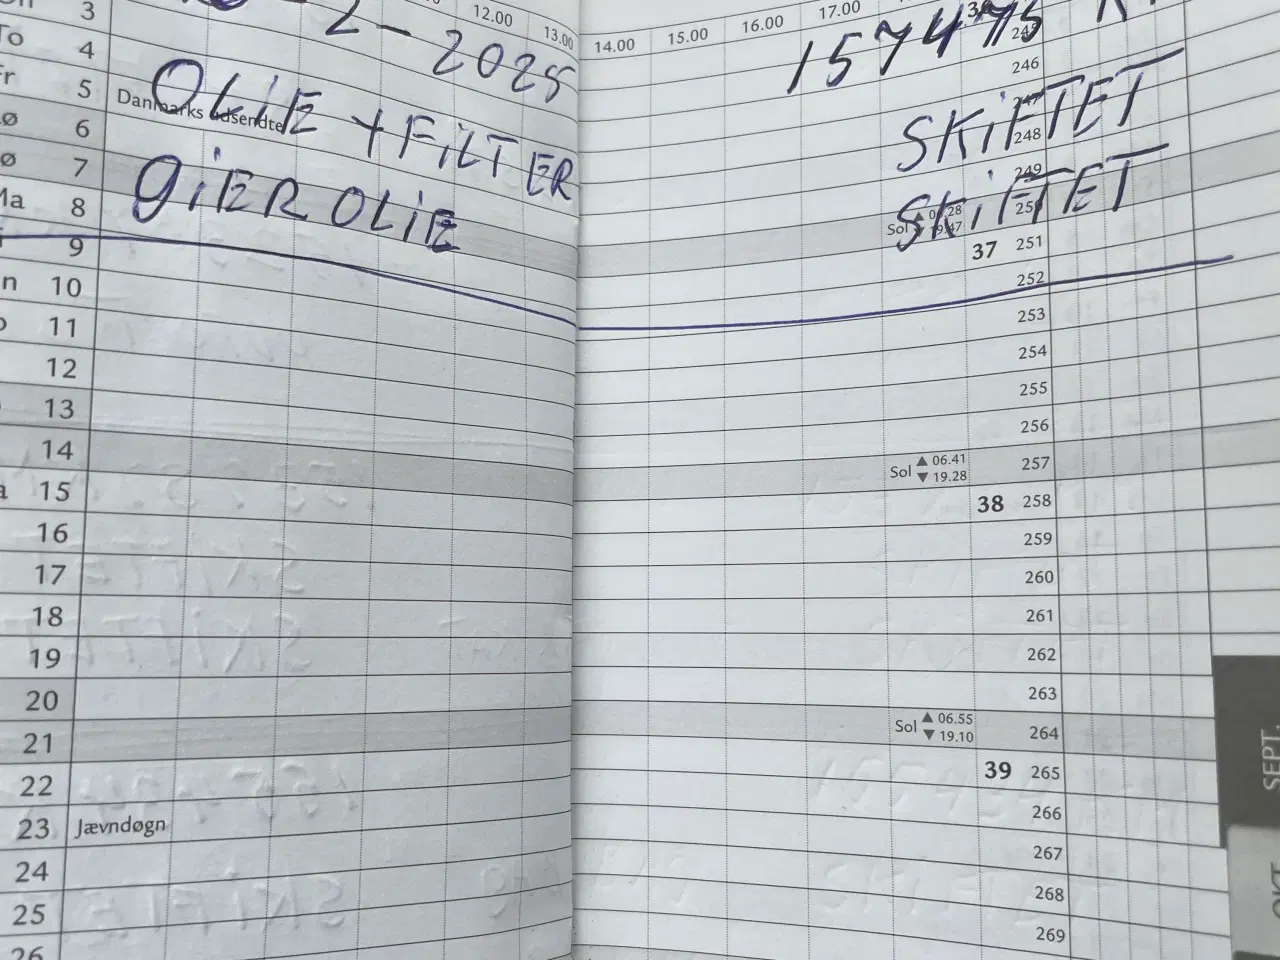 12.00 13.00 14.00 15.00 16.00 17.00
3
To 4
Fr 5 Danmarks udsendte
6
7
Ma 8
9
10
11
12
13
14
15
16
17
18
19
20
21
22
23 Jævndøgn
24
25
26
2-2025 157475
OLiE + FiLTER SKiFTET
GiER OLiE SKiFTET
246
247
248
249
250
37 251
252
253
254
255
256
Sol ▲ 06.41 ▼ 19.28 257
38 258
259
260
261
262
263
Sol ▲ 06.55 ▼ 19.10 264
39 265
266
267
268
269
SEPT.
OKT.